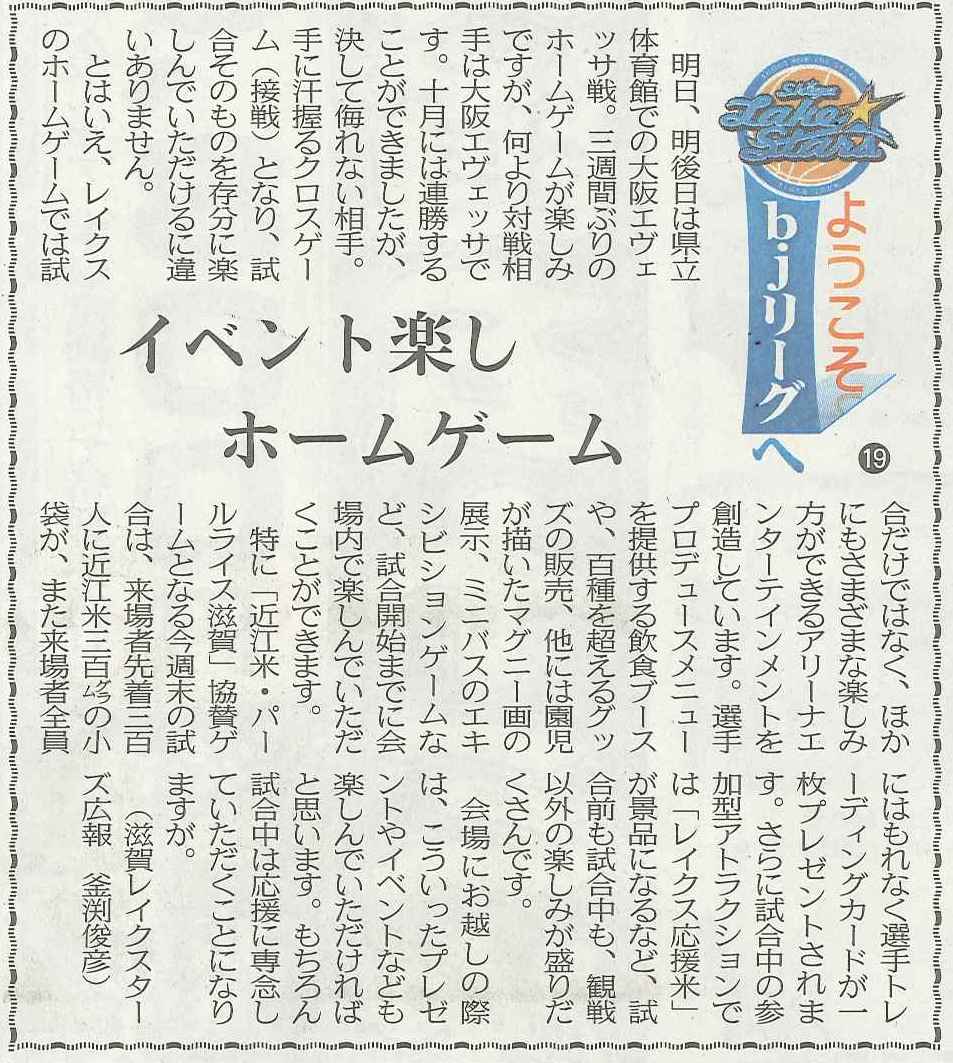 Shiga
Lake Stars
ようこそ
bjリーグへ
19
イベント楽し
ホームゲーム
明日、明後日は県立
体育館での大阪エヴェ
ッサ戦。三週間ぶりの
ホームゲームが楽しみ
ですが、何より対戦相
手は大阪エヴェッサで
す。十月には連勝する
ことができましたが、
決して侮れない相手。
手に汗握るクロスゲー
ム(接戦)となり、試
合そのものを存分に楽
しんでいただけるに違
いありません。
とはいえ、レイクス
のホームゲームでは試
合だけではなく、ほか
にもさまざまな楽しみ
方ができるアリーナエ
ンターテインメントを
創造しています。選手
プロデュースメニュー
を提供する飲食ブース
や、百種を超えるグッ
ズの販売、他には園児
が描いたマグニー画の
展示、ミニバスのエキ
シビションゲームな
ど、試合開始までに会
場内で楽しんでいただ
くことができます。
特に「近江米・パー
ルライス滋賀」協賛ゲ
ームとなる今週末の試
合は、来場者先着三百
人に近江米三百グラムの小
袋が、また来場者全員
にはもれなく選手トレ
ーディングカードが一
枚プレゼントされま
す。さらに試合中の参
加型アトラクションで
は「レイクス応援米」
が景品になるなど、試
合前も試合中も、観戦
以外の楽しみが盛りだ
くさんです。
会場にお越しの際
は、こういったプレゼ
ントやイベントなども
楽しんでいただければ
と思います。もちろん
試合中は応援に専念し
ていただくことになり
ますが。
(滋賀レイクスター
ズ広報 釜渕俊彦)